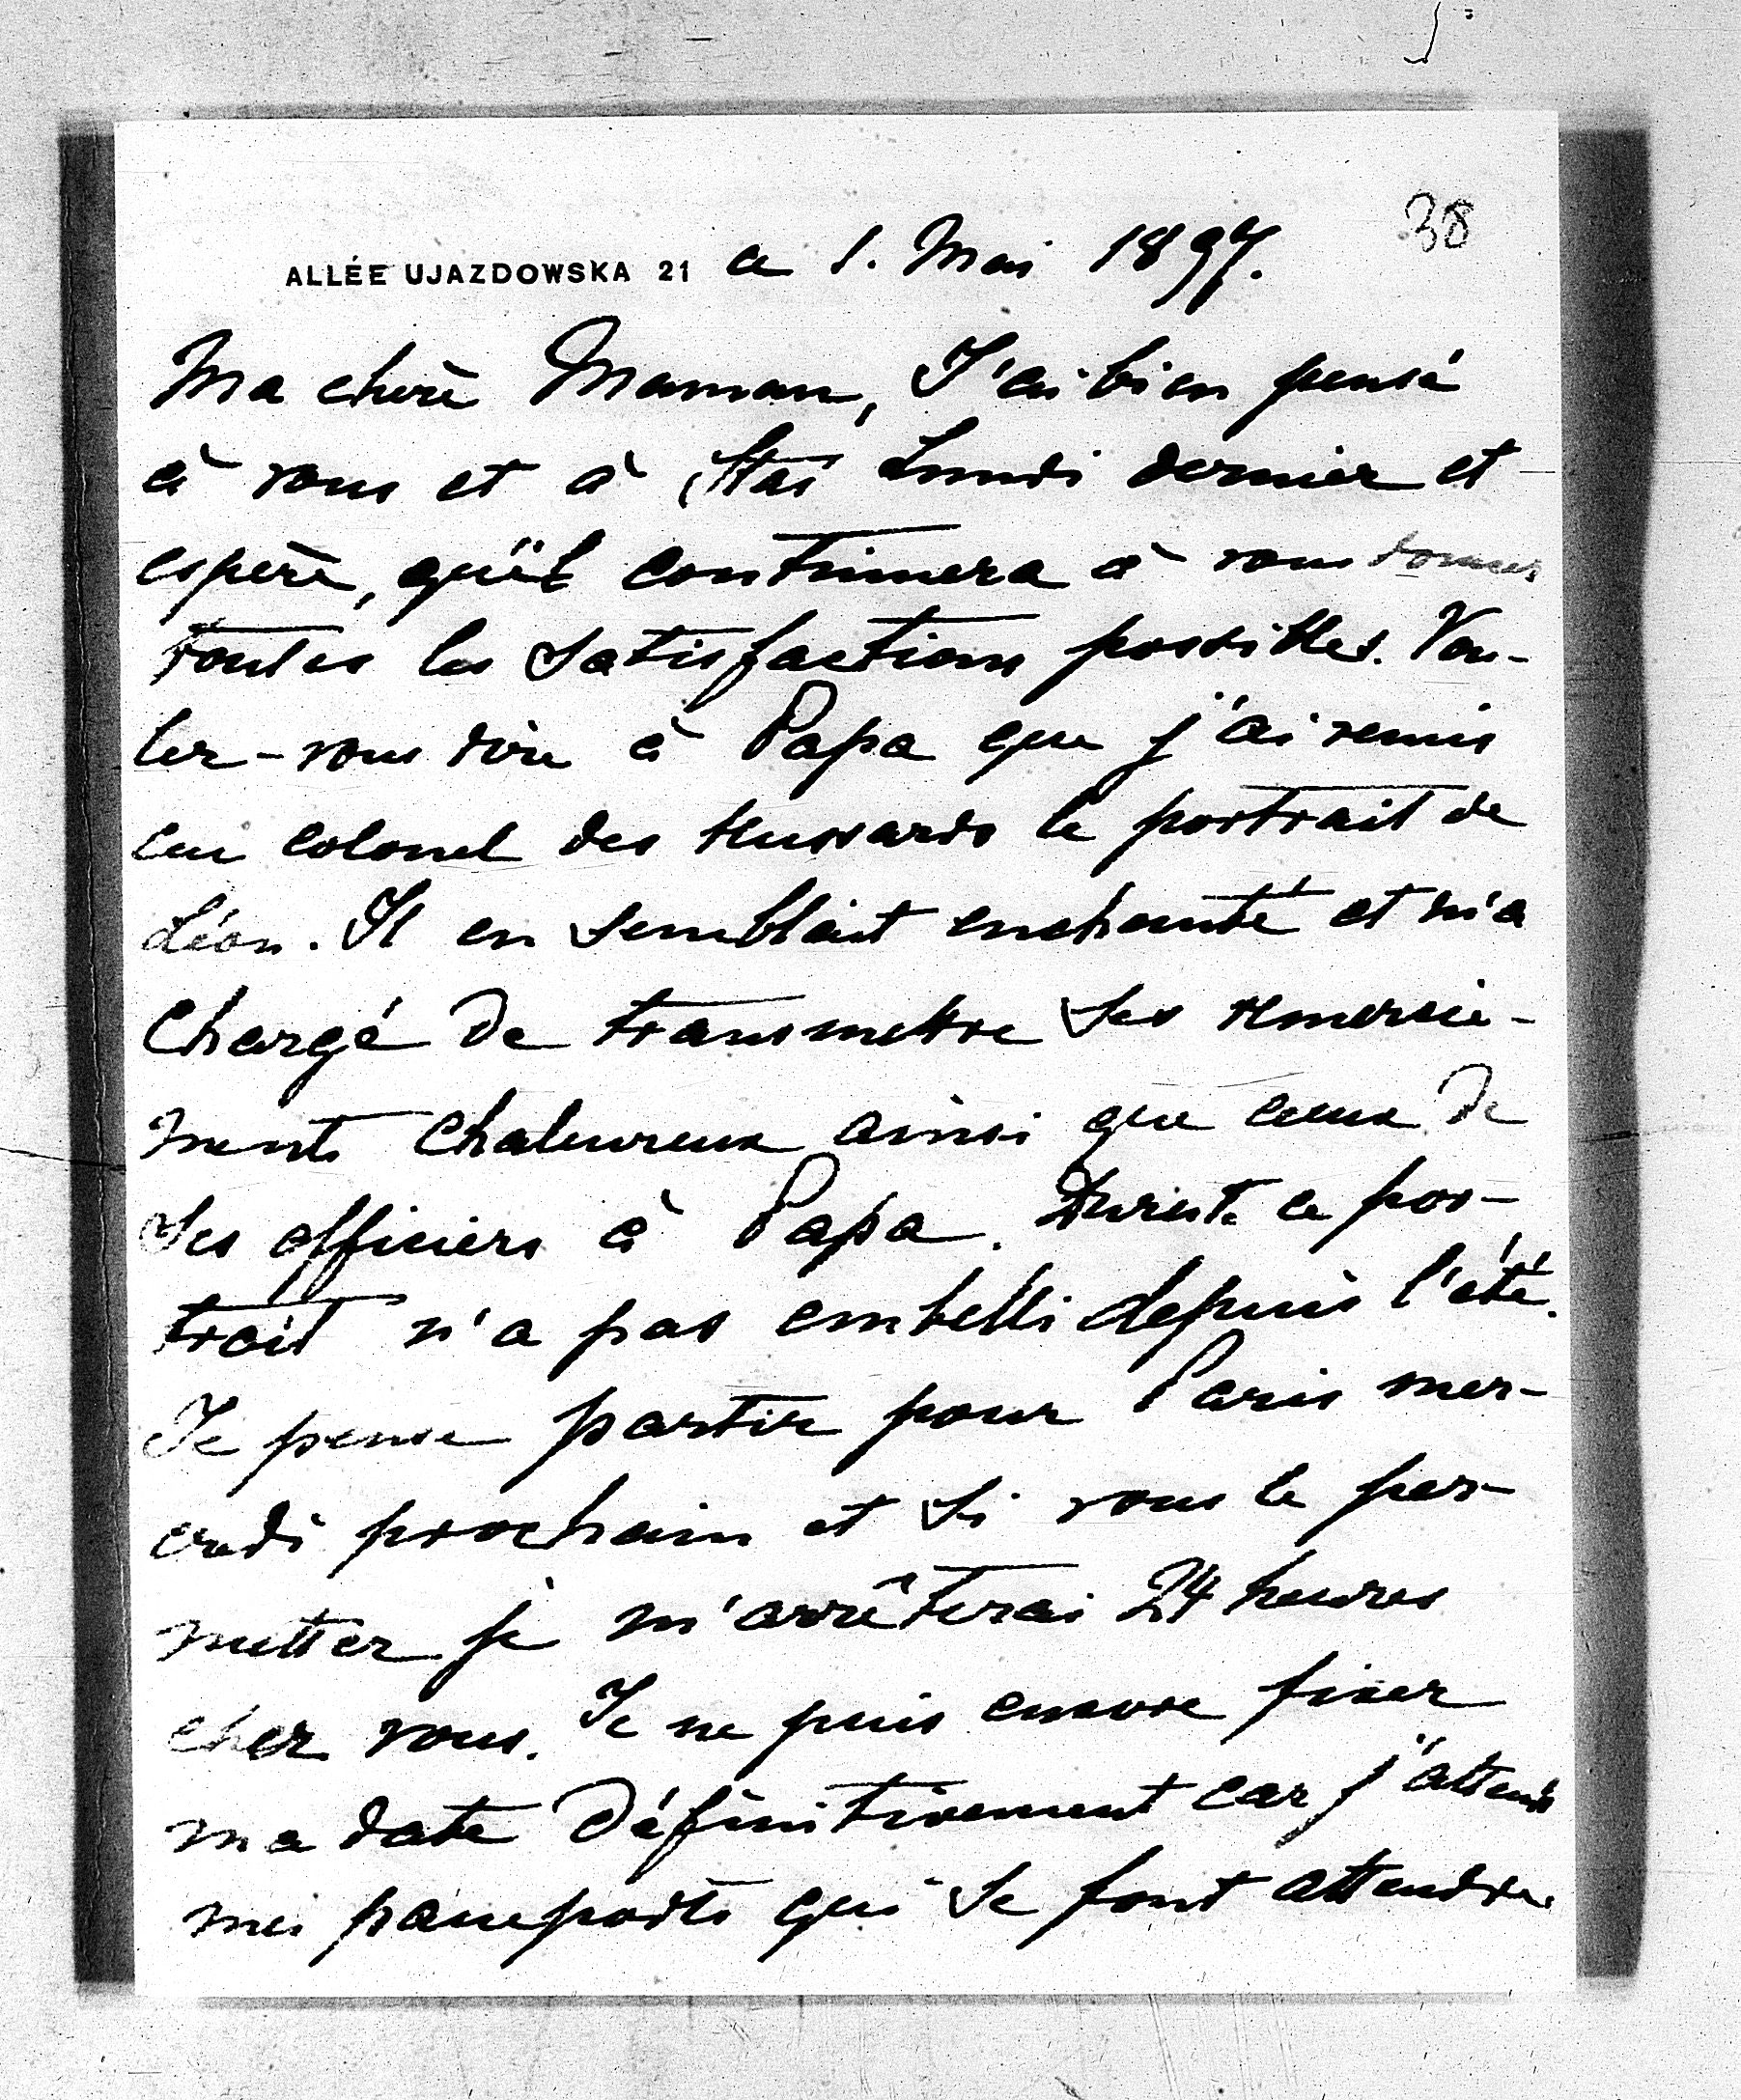 38
ALLÉE UJAZDOWSKA 21 ce 1. Mai 1897.
Ma chère Maman, J'ai bien pensé
à vous et à Stas Lundi dernier et
espère, qu'il continuera à vous donner
toutes les satisfactions possibles. Vou-
lez-vous dire à Papa que j'ai remis
au colonel des Hussards le portrait de
Léon. Il en semblait enchanté et m'a
chargé de transmettre ses remercie-
ments chaleureux ainsi que ceux de
ses officiers à Papa. Du reste ce por-
trait n'a pas embelli depuis l'été.
Je pense partir pour Paris mer-
credi prochain et si vous le per-
mettez je m'arrêterai 24 heures
chez vous. Je ne puis encore fixer
ma date définitivement car j'attends
mes passeports qui se font attendre.